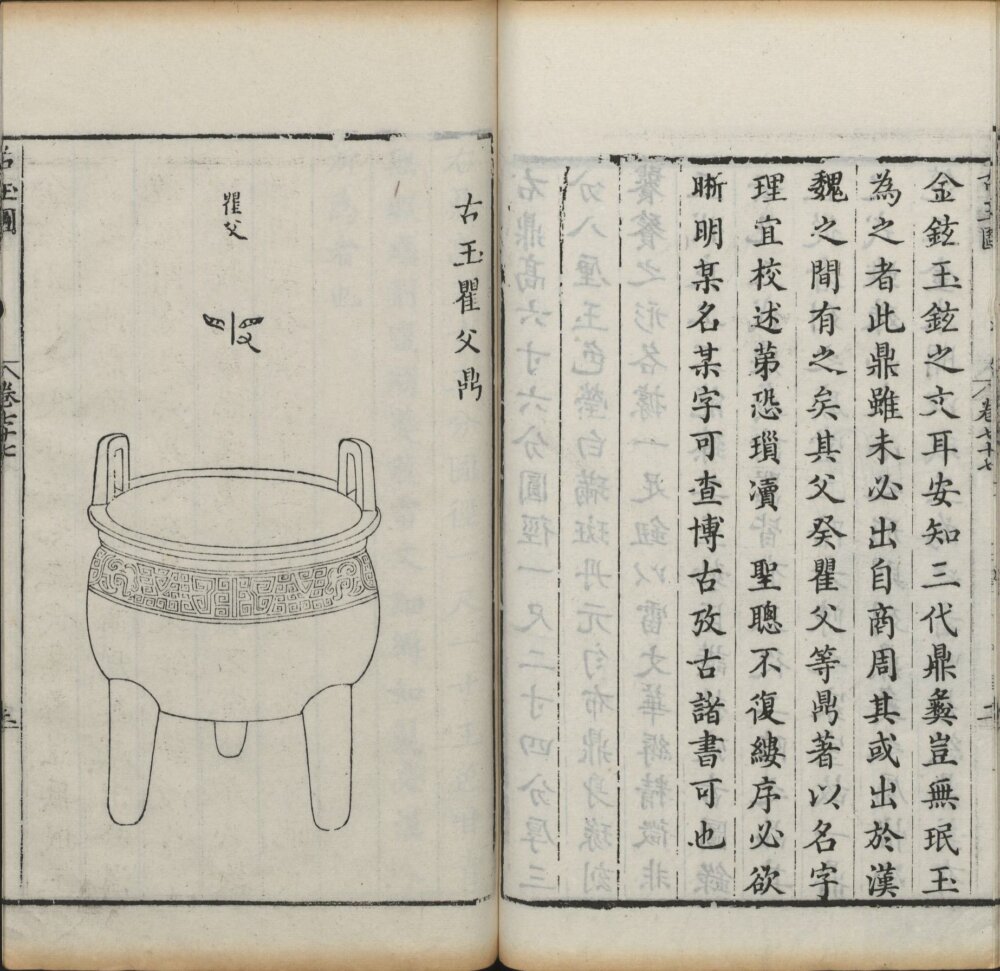 金鉉玉鉉之文耳安知三代鼎彜豈無珉玉
為之者此鼎雖未必出自商周其或出於漢
魏之間有之矣其父癸瞿父等鼎著以名字
理宜校述苐恐瑣瀆聖聰不復縷序必欲
晰明某名某字可查博古攷古諸書可也
卷七十七
古玉瞿父鼎
瞿父
古玉圖
卷七十七